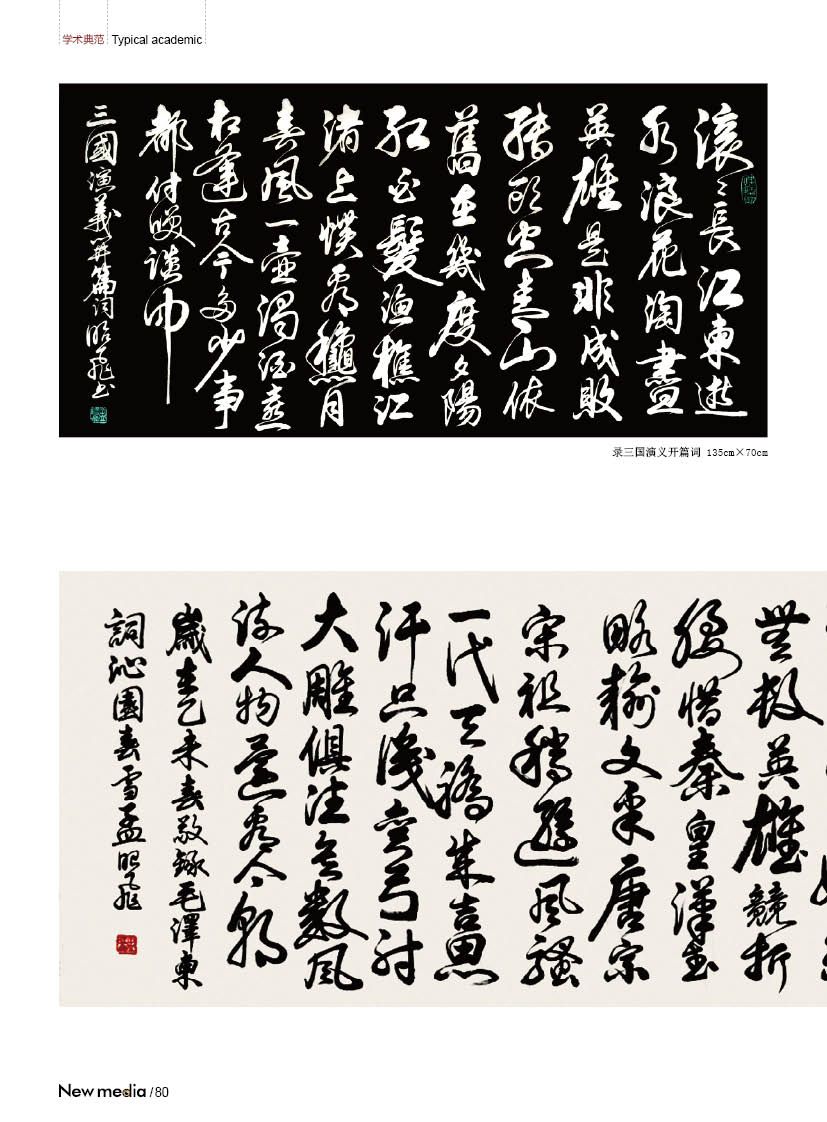 学术典范 Typical academic
滚〻長江東逝
水浪花淘盡
英雄是非成敗
转頭空青山依
舊在幾度夕陽
红白髮漁樵江
渚上惯看龝月
春風一壶濁酒喜
相逢古今多少事
都付咲談中
三國演義開篇词昭飛书
录三国演义开篇词 135cm×70cm
無数英雄競折
腰惜秦皇漢武
略输文采唐宗
宋祖稍遜風騷
一代天驕成吉思
汗只識彎弓射
大雕俱往矣數風
流人物還看今朝
歲在乙未春敬錄毛澤東
詞沁園春雪孟昭飛
New media /80